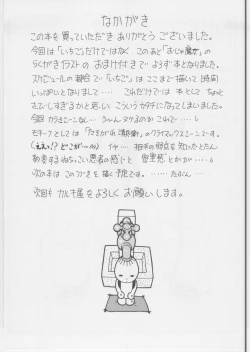 なかがき
この本を買っていただき ありがとうございました。
今回は「いちご」だけではなく このあと「おじゃ魔女」の
らくがきイラストの おまけ付きで よりす本となりました。
スケジュールの都合で「いちご」は ここまで描いて時間
いっぱいとなりまして… これだけでは 本として ちょっと
さびしすぎるかと思い こういうカタチになってしまいました。
今回 カラミシーンなし… うーん ヌケるのか これで…
モチーフとしては のクライマックスシーンです。
(ええっ!? どこが〜) イヤ… 相手の弱点を知ったとたん
思考の感じと 密室感 とかが…
次の本は このつづきを 描く予定です。……たぶん…
次回も カルキ屋を よろしく お願いします。